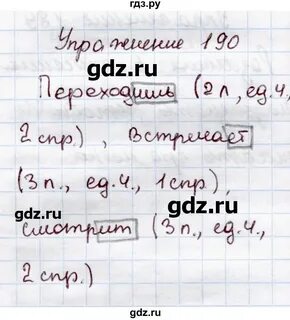 гдз.ру
Упражнение 190
gdz.ru
Переходишь (2л, ед.ч,
2 спр.), встречает
gdz.ru
(3 л., ед.ч., 1 спр),
смотрит (3 л., ед.ч.,
gdz.ru
2 спр.)
gdz.ru